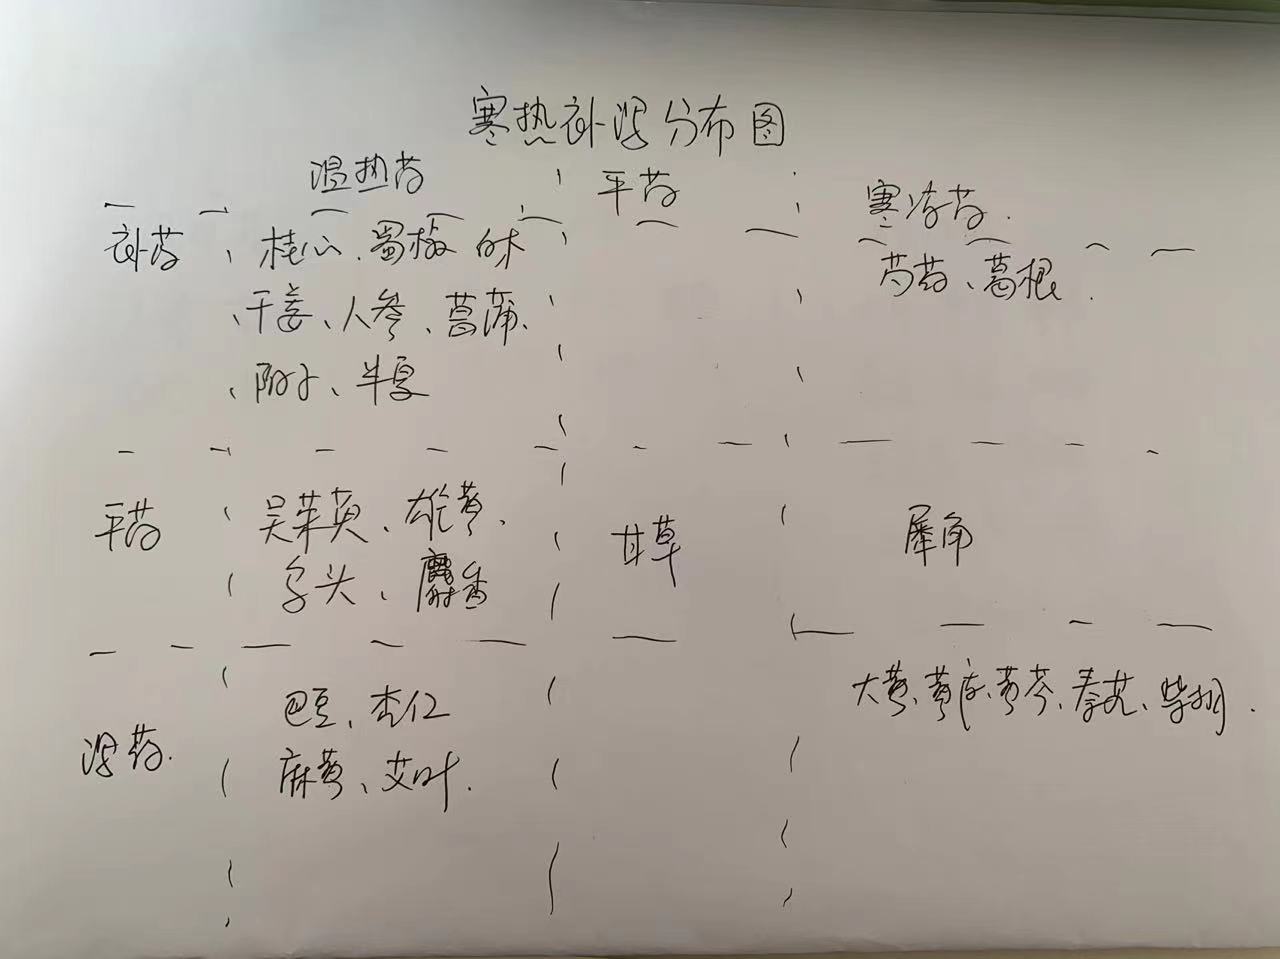 寒热补泻分布图
温热药 平药 寒凉药.
补药 桂心、蜀椒 白术 芍药、葛根.
、干姜、人参、菖蒲、
、附子、半夏
平药 吴茱萸、雄黄、 甘草 犀角
乌头、麝香
泻药. 巴豆、杏仁 大黄、黄连、黄芩、秦艽、柴胡.
麻黄、艾叶.